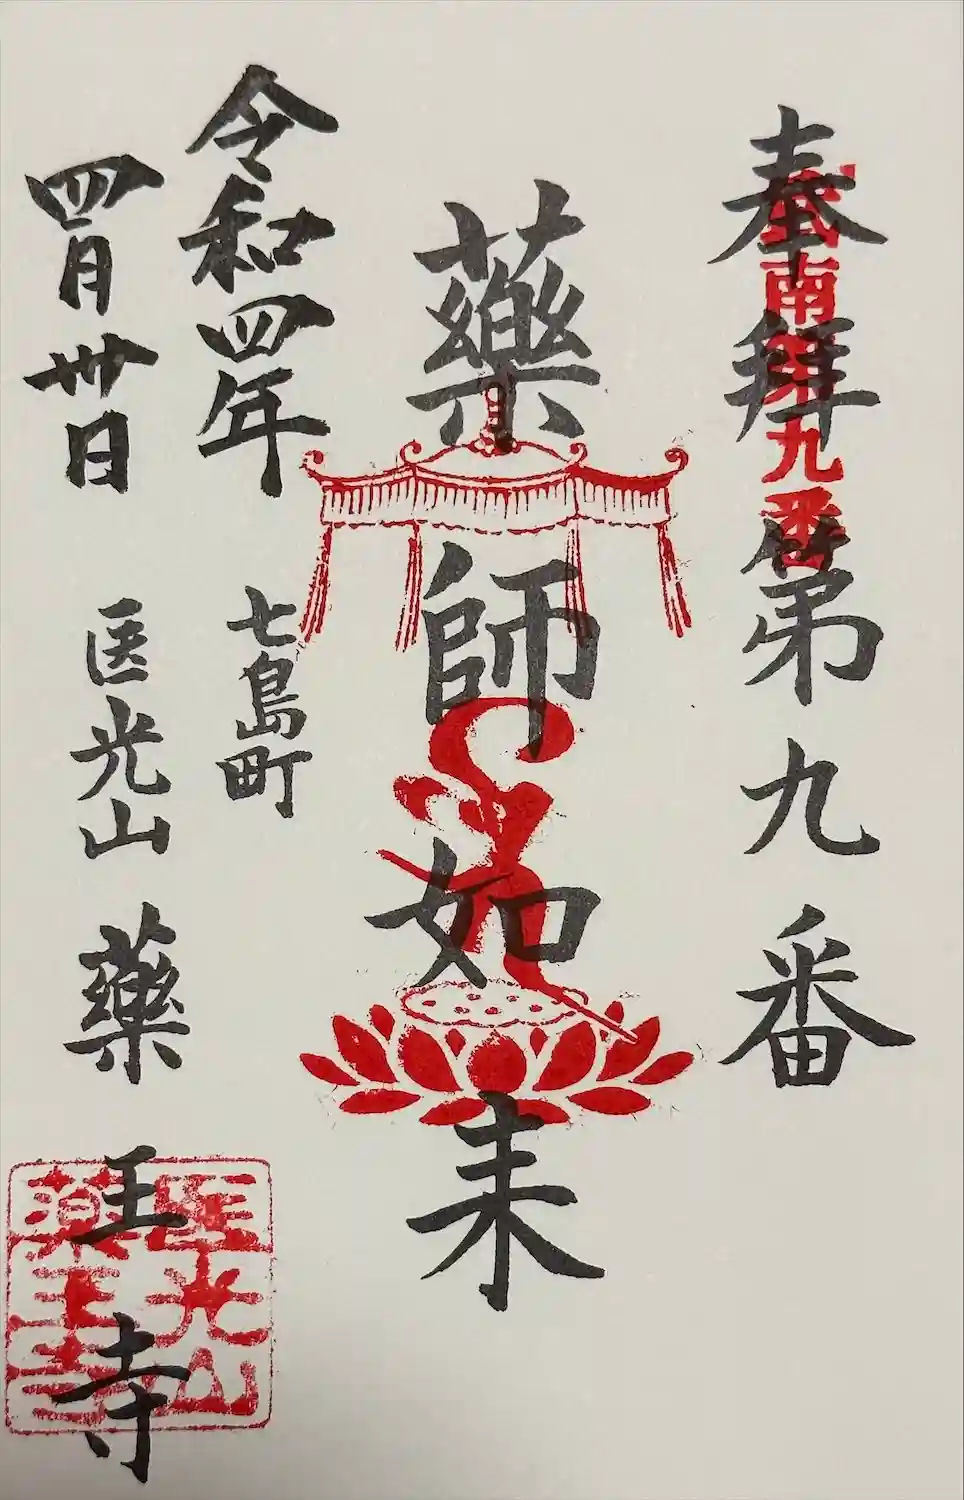 奉拜 第九番
武南第九番
藥師如来
令和四年
四月卅日
七島町
医光山 藥王寺
医光山
薬王寺